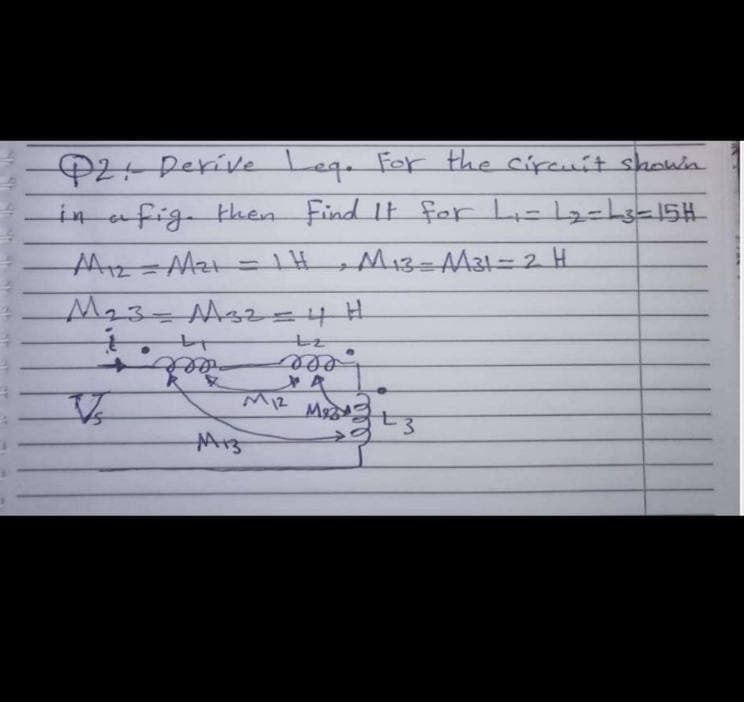 Q2:- Derive Leq. For the circuit shown
in a fig. then Find It for L1 = L2 = L3 = 15H
M12 = M21 = 1 H , M13 = M31 = 2 H
M23 = M32 = 4 H
i L1 L2
Vs M12 M23 L3
M13